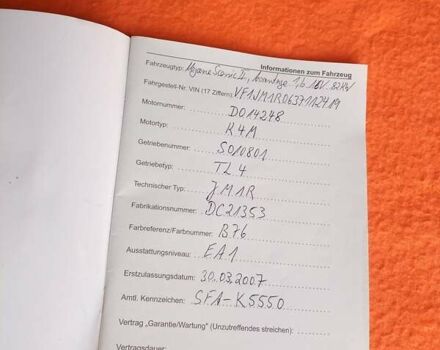 Informationen zum Fahrzeug
Fahrzeugtyp: Megane Scenic II, Avantage 1,6 16V 82KW
Fahrgestell-Nr. VIN (17 Ziffern): VF1JM1R0637112419
Motornummer: D014248
Motortyp: K4M
Getriebenummer: S010801
Getriebetyp: TL4
Technischer Typ: JM1R
Fabrikationsnummer: DC21353
Farbreferenz/Farbnummer: B76
Ausstattungsniveau: EA1
Erstzulassungsdatum: 30.03.2007
Amtl. Kennzeichen: SFA-K5550
Vertrag „Garantie/Wartung" (Unzutreffendes streichen):
Vertragsdauer: